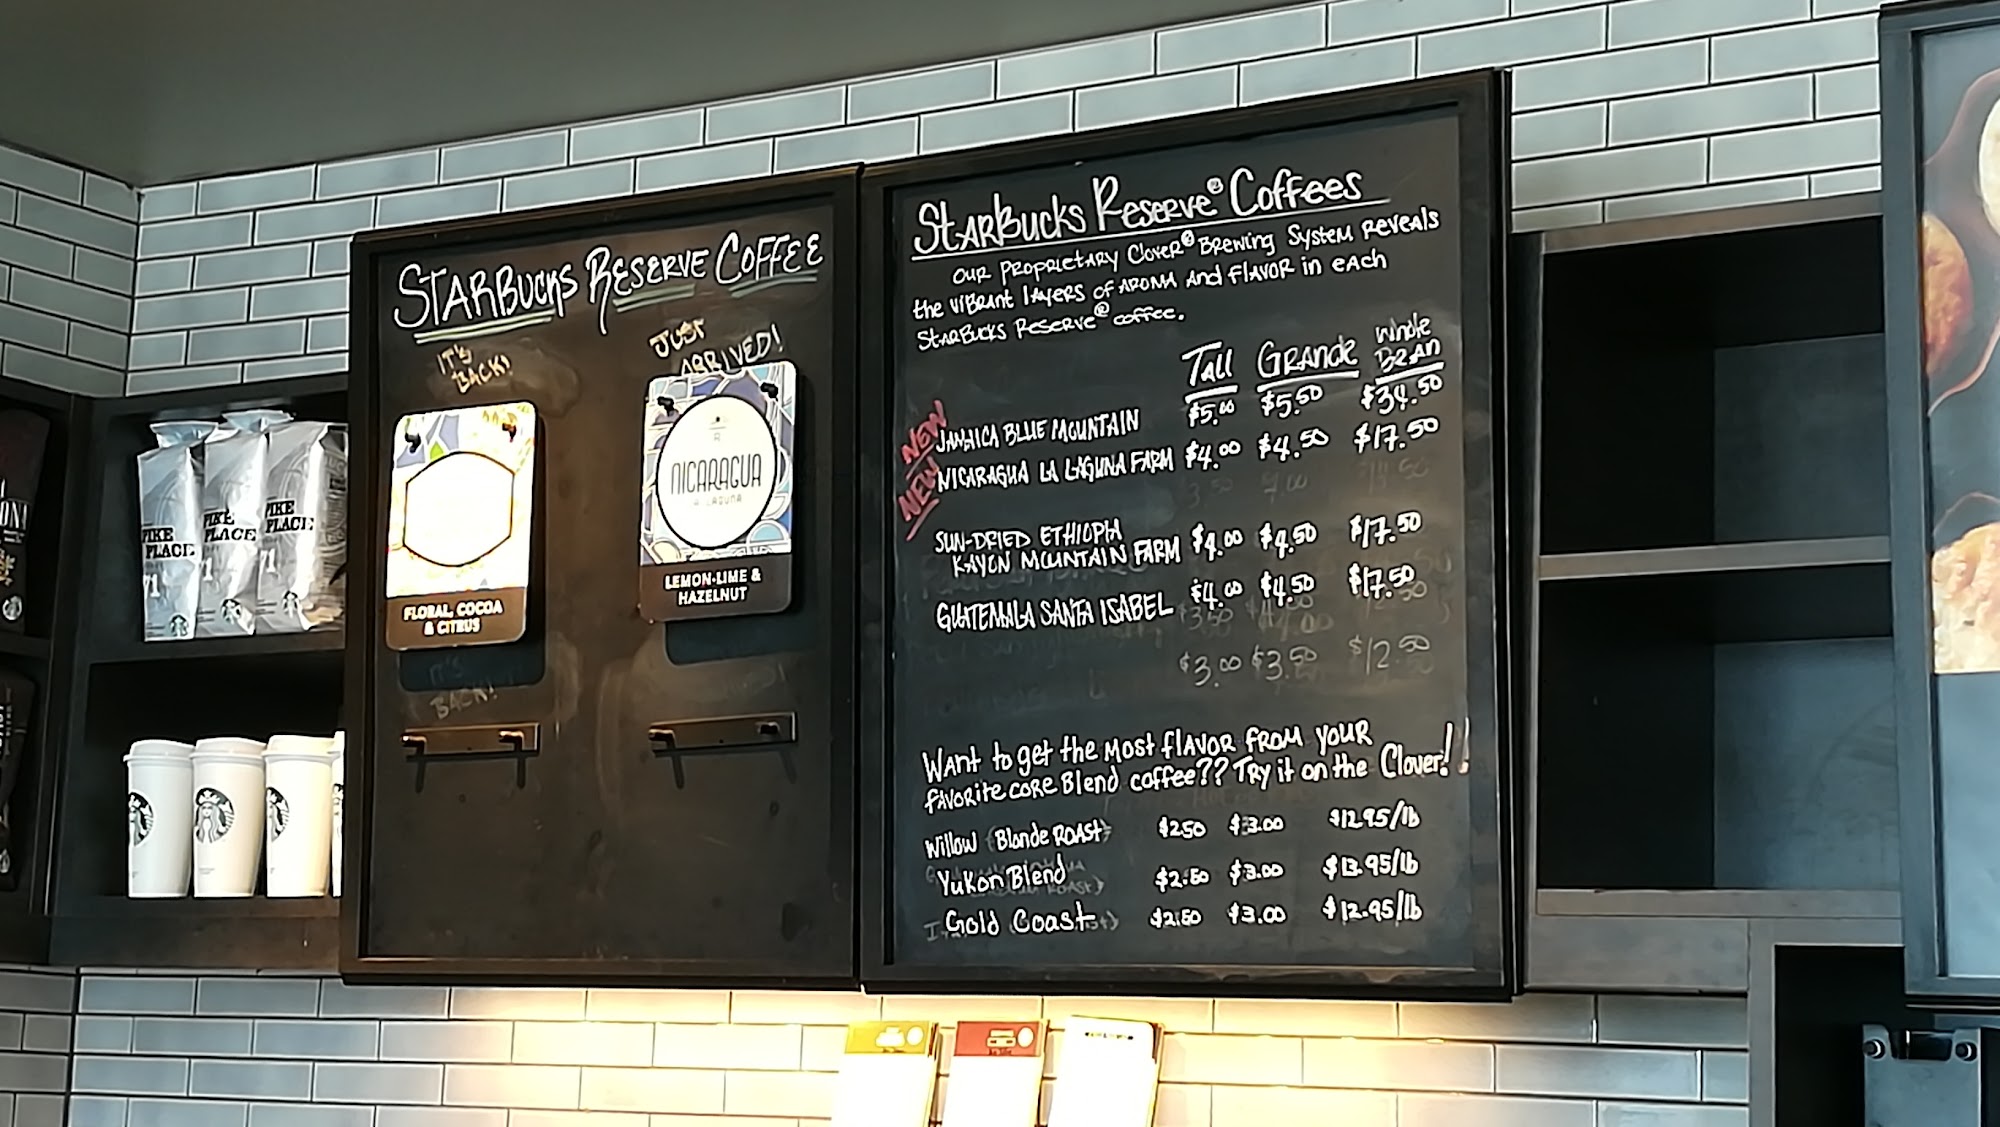 STARBUCKS RESERVE COFFEE
IT'S
BACK!
JUST
ARRIVED!
NICARAGUA
LAGUNA
FLORAL, COCOA
& CITRUS
LEMON-LIME &
HAZELNUT
IT'S
BACK!
PIKE
PLACE
PIKE
PLACE
PIKE
PLACE
StarBucks Reserve® Coffees
Our Proprietary Clover® Brewing System Reveals
the vibrant layers of aroma and flavor in each
StarBucks Reserve® coffee.
Tall Grande Whole
Bean
NEW JAMAICA BLUE MOUNTAIN $5.00 $5.50 $34.50
NEW NICARAGUA LA LAGUNA FARM $4.00 $4.50 $17.50
SUN-DRIED ETHIOPIA
KAYON MOUNTAIN FARM $4.00 $4.50 $17.50
GUATEMALA SANTA ISABEL $4.00 $4.50 $17.50
$3.00 $3.50 $12.50
Want to get the most flavor from your
favorite core Blend coffee?? Try it on the Clover!!
Willow (Blonde Roast) $2.50 $3.00 $12.95/lb
Yukon Blend $2.50 $3.00 $13.95/lb
Gold Coast $2.50 $3.00 $12.95/lb